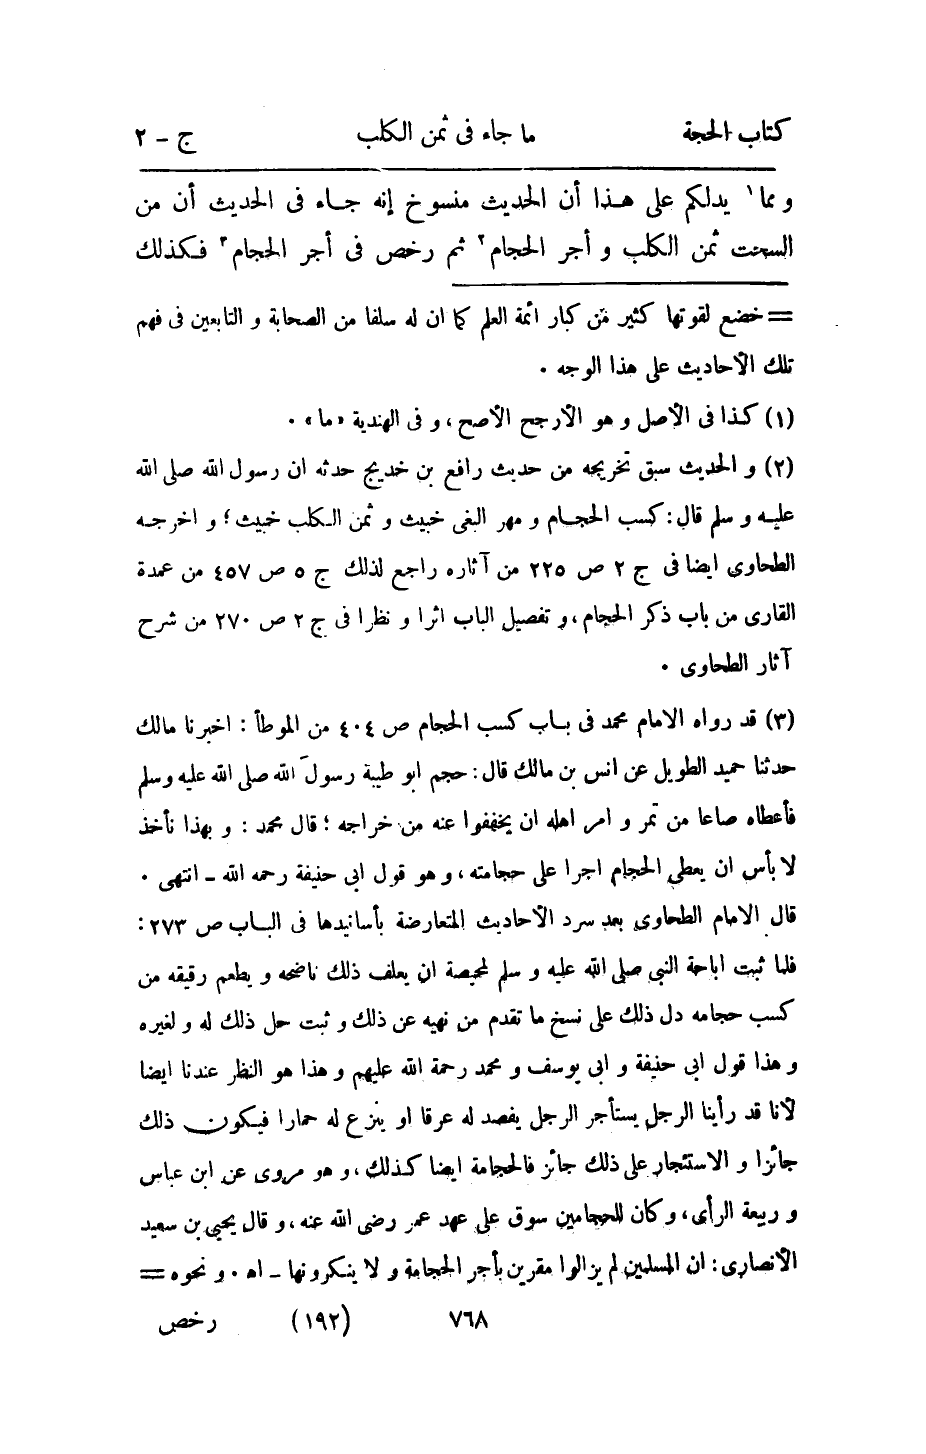 كتاب الحجة ما جاء فى ثمن الكلب ج - ٢
و مما ١ يدلكم على هذا أن الحديث منسوخ إنه جاء فى الحديث أن من
السحت ثمن الكلب و أجر الحجام ٢ ثم رخص فى أجر الحجام ٣ فكذلك
= خضع لقوتها كثير من كبار ائمة العلم كما ان له سلفا من الصحابة و التابعين فى فهم
تلك الأحاديث على هذا الوجه .
(١) كذا فى الأصل و هو الأرجح الأصح ، و فى الهندية «ما» .
(٢) و الحديث سبق تخريجه من حديث رافع بن خديج حدثه ان رسول الله صلى الله
عليه و سلم قال : كسب الحجام و مهر البغى خبيث و ثمن الكلب خبيث ؛ و اخرجه
الطحاوى ايضا فى ج ٢ ص ٢٢٥ من آثاره راجع لذلك ج ٥ ص ٤٥٧ من عمدة
القارى من باب ذكر الحجام ، و تفصيل الباب اثرا و نظرا فى ج ٢ ص ٢٧٠ من شرح
آثار الطحاوى .
(٣) قد رواه الامام محمد فى باب كسب الحجام ص ٤٠٤ من الموطأ : اخبرنا مالك
حدثنا حميد الطويل عن انس بن مالك قال : حجم ابو طيبة رسول الله صلى الله عليه وسلم
فأعطاه صاعا من تمر و امر اهله ان يخففوا عنه من خراجه ؛ قال محمد : و بهذا نأخذ
لا بأس ان يعطى الحجام اجرا على حجامته ، و هو قول ابى حنيفة رحمه الله - انتهى .
قال الامام الطحاوى بعد سرد الأحاديث المتعارضة بأسانيدها فى الباب ص ٢٧٣ :
فلما ثبت اباحة النبى صلى الله عليه و سلم لمحيصة ان يعلف ذلك ناضحه و يطعم رقيقه من
كسب حجامه دل ذلك على نسخ ما تقدم من نهيه عن ذلك و ثبت حل ذلك له و لغيره
و هذا قول ابى حنيفة و ابى يوسف و محمد رحمة الله عليهم و هذا هو النظر عندنا ايضا
لأنا قد رأينا الرجل يستأجر الرجل يفصد له عرقا او ينزع له حمارا فيكون ذلك
جائزا و الاستئجار على ذلك جائز فالحجامة ايضا كذلك ، و هو مروى عن ابن عباس
و ربيعة الرأى ، و كان للحجامين سوق على عهد عمر رضى الله عنه ، و قال يحيى بن سعيد
الأنصارى : ان المسلمين لم يزالوا مقرين بأجر الحجامة و لا ينكرونها - اه . و نحوه =
٧٦٨ (١٩٢) رخص